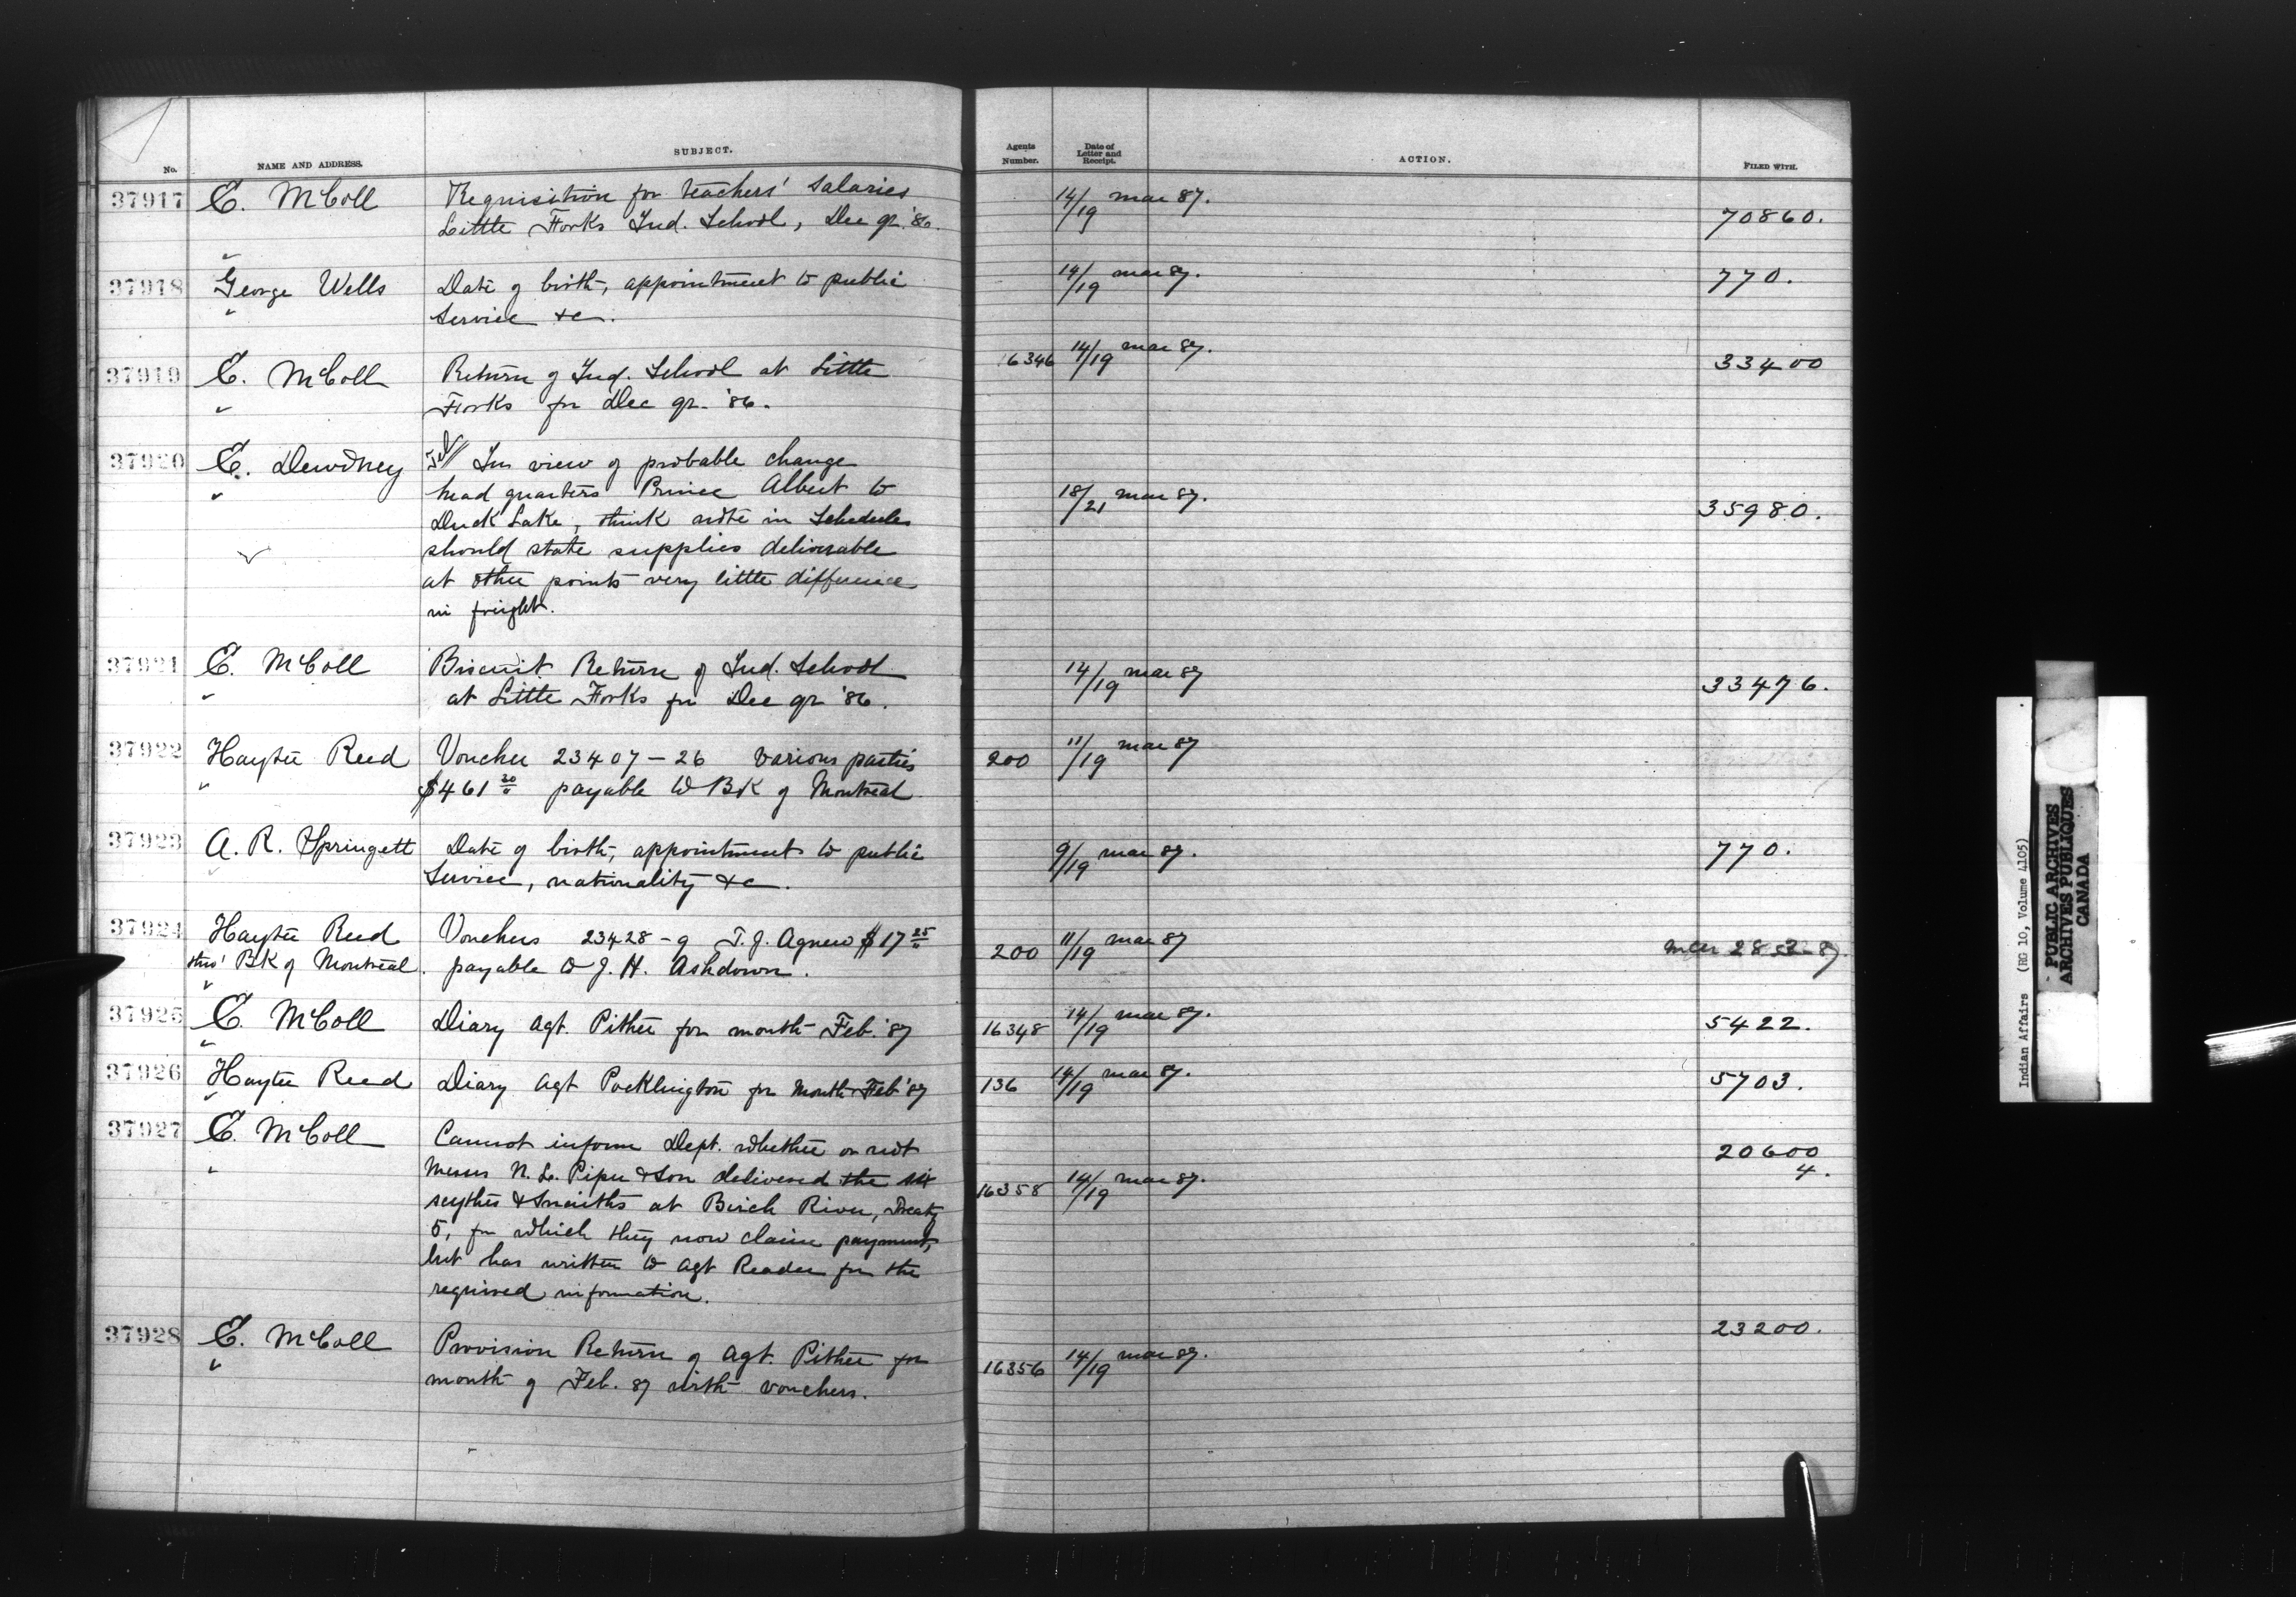 No. NAME AND ADDRESS. SUBJECT. Agents Number. Date of Letter and Receipt. ACTION. FILED WITH.
37917 E. McColl Requisition for teachers' salaries 14/19 mar 87. 70860.
Little Forks Ind. School, Dec qr. '86.
"
37918 George Wells Date of birth, appointment to public 14/19 mar 87. 770.
" Service &c.
37919 E. McColl Return of Ind. School at Little 16346 14/19 mar 87. 33400
" Forks for Dec qr. '86.
37920 E. Dewdney Tel// In view of probable change
" head quarters Prince Albert to 18/21 mar 87. 35980.
Duck Lake, think note in Schedules
should state supplies deliverable
at other points very little difference
in freight.
37921 E. McColl Biscuit Return of Ind. School 14/19 mar 87 33476.
" at Little Forks for Dec qr '86.
37922 Hayter Reed Voucher 23407-26 various parties 200 11/19 mar 87
" $461 20 payable to BK of Montreal
37923 A. R. Springett Date of birth, appointment to public 9/19 mar 87. 770.
" Service, nationality &c.
37924 Hayter Reed Vouchers 23428-9 T. J. Agnew $17 25 200 11/19 mar 87
thro' BK of Montreal. payable to J. H. Ashdown.
"
37925 E. McColl Diary Agt. Pither for month Feb. '87 16348 14/19 mar 87. 5422.
"
37926 Hayter Reed Diary Agt Pocklington for Month Feb '87 136 14/19 mar 87. 5703.
"
37927 E. McColl Cannot inform Dept. whether or not 20600
4.
" Messrs N. L. Piper & Son delivered the six 16358 14/19 mar 87.
scythes & Snaiths at Birch River, Treaty
5, for which they now claim payment,
but has written to Agt Reader for the
required information.
37928 E. McColl Provision Return of Agt. Pither for 16356 14/19 mar 87. 23200.
" month of Feb. 87 with vouchers.
Indian Affairs (RG 10, Volume 4105)
PUBLIC ARCHIVES
ARCHIVES PUBLIQUES
CANADA